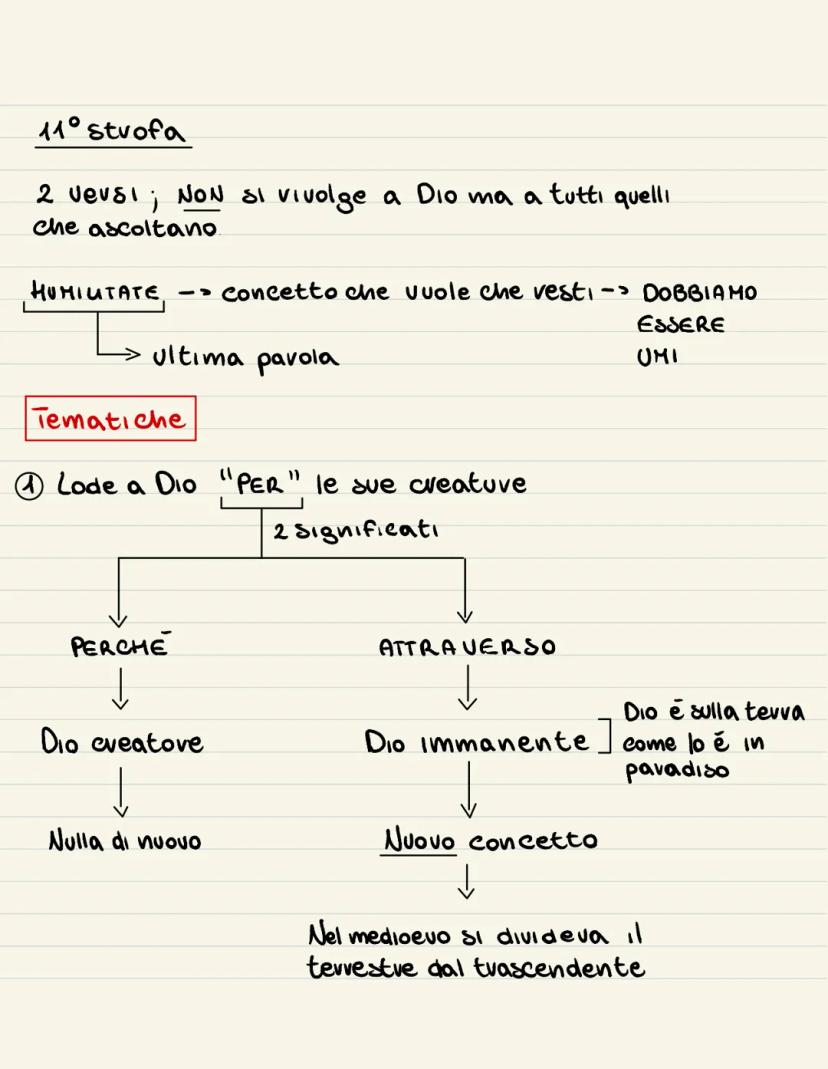 11° strofa
2 versi; NON si rivolge a Dio ma a tutti quelli
che ascoltano
HUMILITATE --> concetto che vuole che resti --> DOBBIAMO
ESSERE
UMI
ultima parola
Tematiche
① Lode a Dio "PER" le sue creature
2 significati
PERCHÉ
ATTRAVERSO
Dio creatore
Dio immanente
Dio è sulla terra
come lo è in
paradiso
Nulla di nuovo
Nuovo concetto
Nel medioevo si divideva il
terrestre dal trascendente